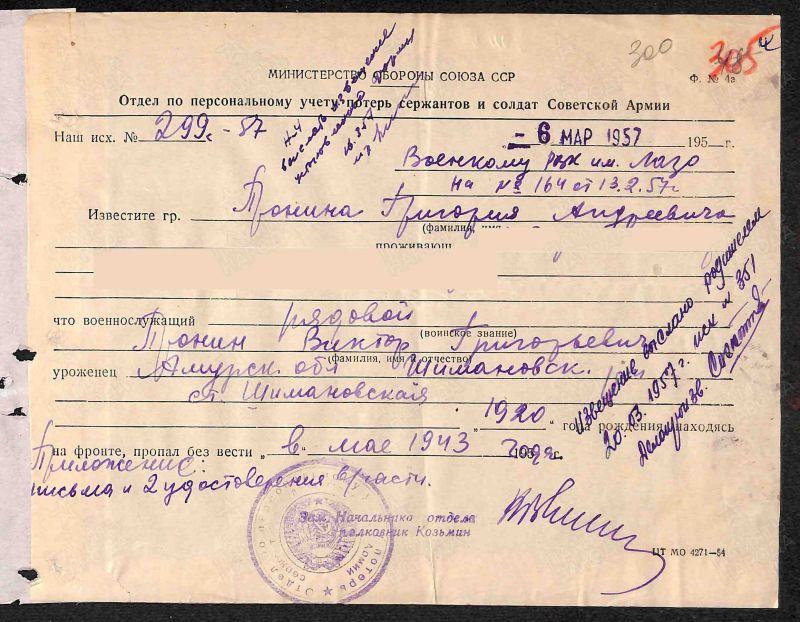 300
305 4
МИНИСТЕРСТВО ОБОРОНЫ СОЮЗА ССР
Ф. № 4а
Отдел по персональному учету потерь сержантов и солдат Советской Армии
Наш исх. № 299с - 57
- 6 МАР 1957 195 г.
Военкому рвк им. Лазо
на № 164 от 13.2.57г
Известите гр. Понина Григория Андреевича
(фамилия, имя
проживающ
что военнослужащий рядовой
(воинское звание)
Понин Виктор Григорьевич
(фамилия, имя и отчество)
уроженец Амурск. обл Шимановск.
ст. Шимановская
1920 года рождения, находясь
на фронте, пропал без вести „ в мае 1943 года г.
Приложение:
письма и 2 удостоверения в/части.
Зам. Начальника отдела
полковник Козьмин
ЦТ МО 4271—54
Извещение выслано родителям
20.03.1957г. исх № 351